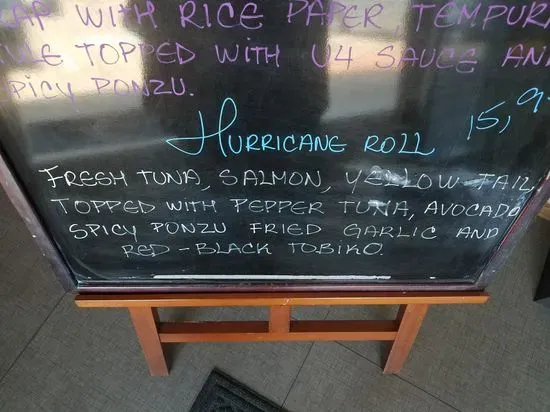 WITH RICE PAPER, TEMPURA
TOPPED WITH U4 SAUCE AND
SPICY PONZU.
HURRICANE ROLL 15,9
FRESH TUNA, SALMON, YELLOW-TAIL,
TOPPED WITH PEPPER TUNA, AVOCADO
SPICY PONZU FRIED GARLIC AND
RED-BLACK TOBIKO.